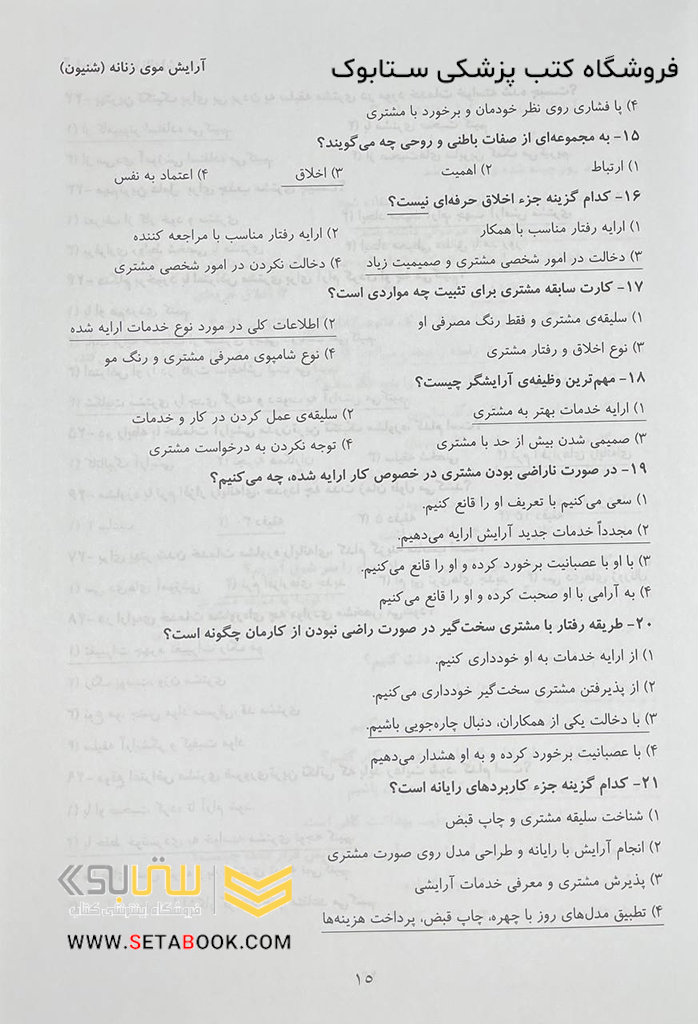 فروشگاه کتب پزشکی ستابوک
آرایش موی زنانه (شنیون)
۴) پا فشاری روی نظر خودمان و برخورد با مشتری
۱۵- به مجموعه‌ای از صفات باطنی و روحی چه می‌گویند؟
۱) ارتباط ۲) اهمیت ۳) اخلاق ۴) اعتماد به نفس
۱۶- کدام گزینه جزء اخلاق حرفه‌ای نیست؟
۱) ارایه رفتار مناسب با همکار ۲) ارایه رفتار مناسب با مراجعه کننده
۳) دخالت در امور شخصی مشتری و صمیمیت زیاد ۴) دخالت نکردن در امور شخصی مشتری
۱۷- کارت سابقه مشتری برای تثبیت چه مواردی است؟
۱) سلیقه‌ی مشتری و فقط رنگ مصرفی او ۲) اطلاعات کلی در مورد نوع خدمات ارایه شده
۳) نوع اخلاق و رفتار مشتری ۴) نوع شامپوی مصرفی مشتری و رنگ مو
۱۸- مهم‌ترین وظیفه‌ی آرایشگر چیست؟
۱) ارایه خدمات بهتر به مشتری ۲) سلیقه‌ی عمل کردن در کار و خدمات
۳) صمیمی شدن بیش از حد با مشتری ۴) توجه نکردن به درخواست مشتری
۱۹- در صورت ناراضی بودن مشتری در خصوص کار ارایه شده، چه می‌کنیم؟
۱) سعی می‌کنیم با تعریف او را قانع کنیم.
۲) مجدداً خدمات جدید آرایش ارایه می‌دهیم.
۳) با او با عصبانیت برخورد کرده و او را قانع می‌کنیم.
۴) به آرامی با او صحبت کرده و او را قانع می‌کنیم
۲۰- طریقه رفتار با مشتری سخت‌گیر در صورت راضی نبودن از کارمان چگونه است؟
۱) از ارایه خدمات به او خودداری کنیم.
۲) از پذیرفتن مشتری سخت‌گیر خودداری می‌کنیم.
۳) با دخالت یکی از همکاران، دنبال چاره‌جویی باشیم.
۴) با عصبانیت برخورد کرده و به او هشدار می‌دهیم
۲۱- کدام گزینه جزء کاربردهای رایانه است؟
۱) شناخت سلیقه مشتری و چاپ قبض
۲) انجام آرایش با رایانه و طراحی مدل روی صورت مشتری
۳) پذیرش مشتری و معرفی خدمات آرایشی
۴) تطبیق مدل‌های روز با چهره، چاپ قبض، پرداخت هزینه‌ها
ستابوک
فروشگاه اینترنتی کتاب
WWW.SETABOOK.COM
۱۵